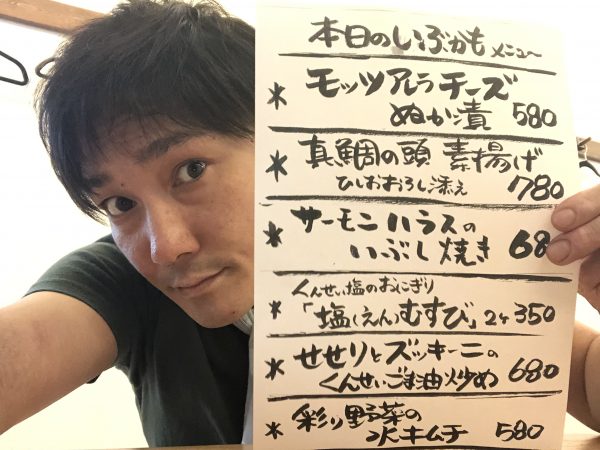 本日のいぶかもメニュー
* モッツアレラチーズ
ぬか漬 580
* 真鯛の頭 素揚げ
ひしおおろし添え 780
* サーモンハラスの
いぶし焼き 68
くんせい塩のおにぎり
* 「塩(えん)むすび」2ヶ 350
* せせりとズッキーニの
くんせいごま油炒め 680
* 彩り野菜の
水キムチ 580